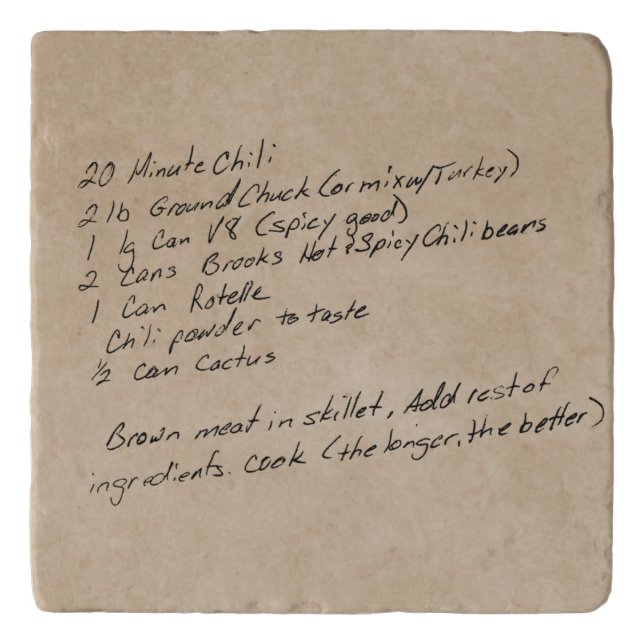 20 Minute Chili
2 lb Ground Chuck (or mix w/Turkey)
1 lg Can V8 (spicy good)
2 Cans Brooks Hot & Spicy Chili beans
1 Can Rotelle
Chili powder to taste
1/2 can Cactus
Brown meat in skillet, Add rest of
ingredients. Cook (the longer, the better)